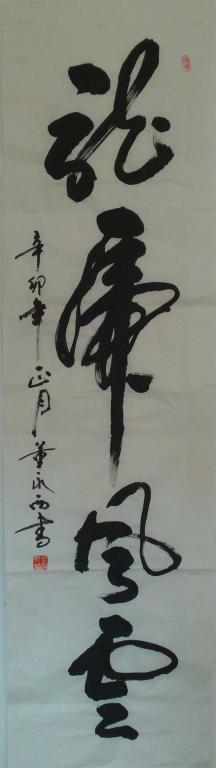 龍虎風雲
辛卯年正月董永西書